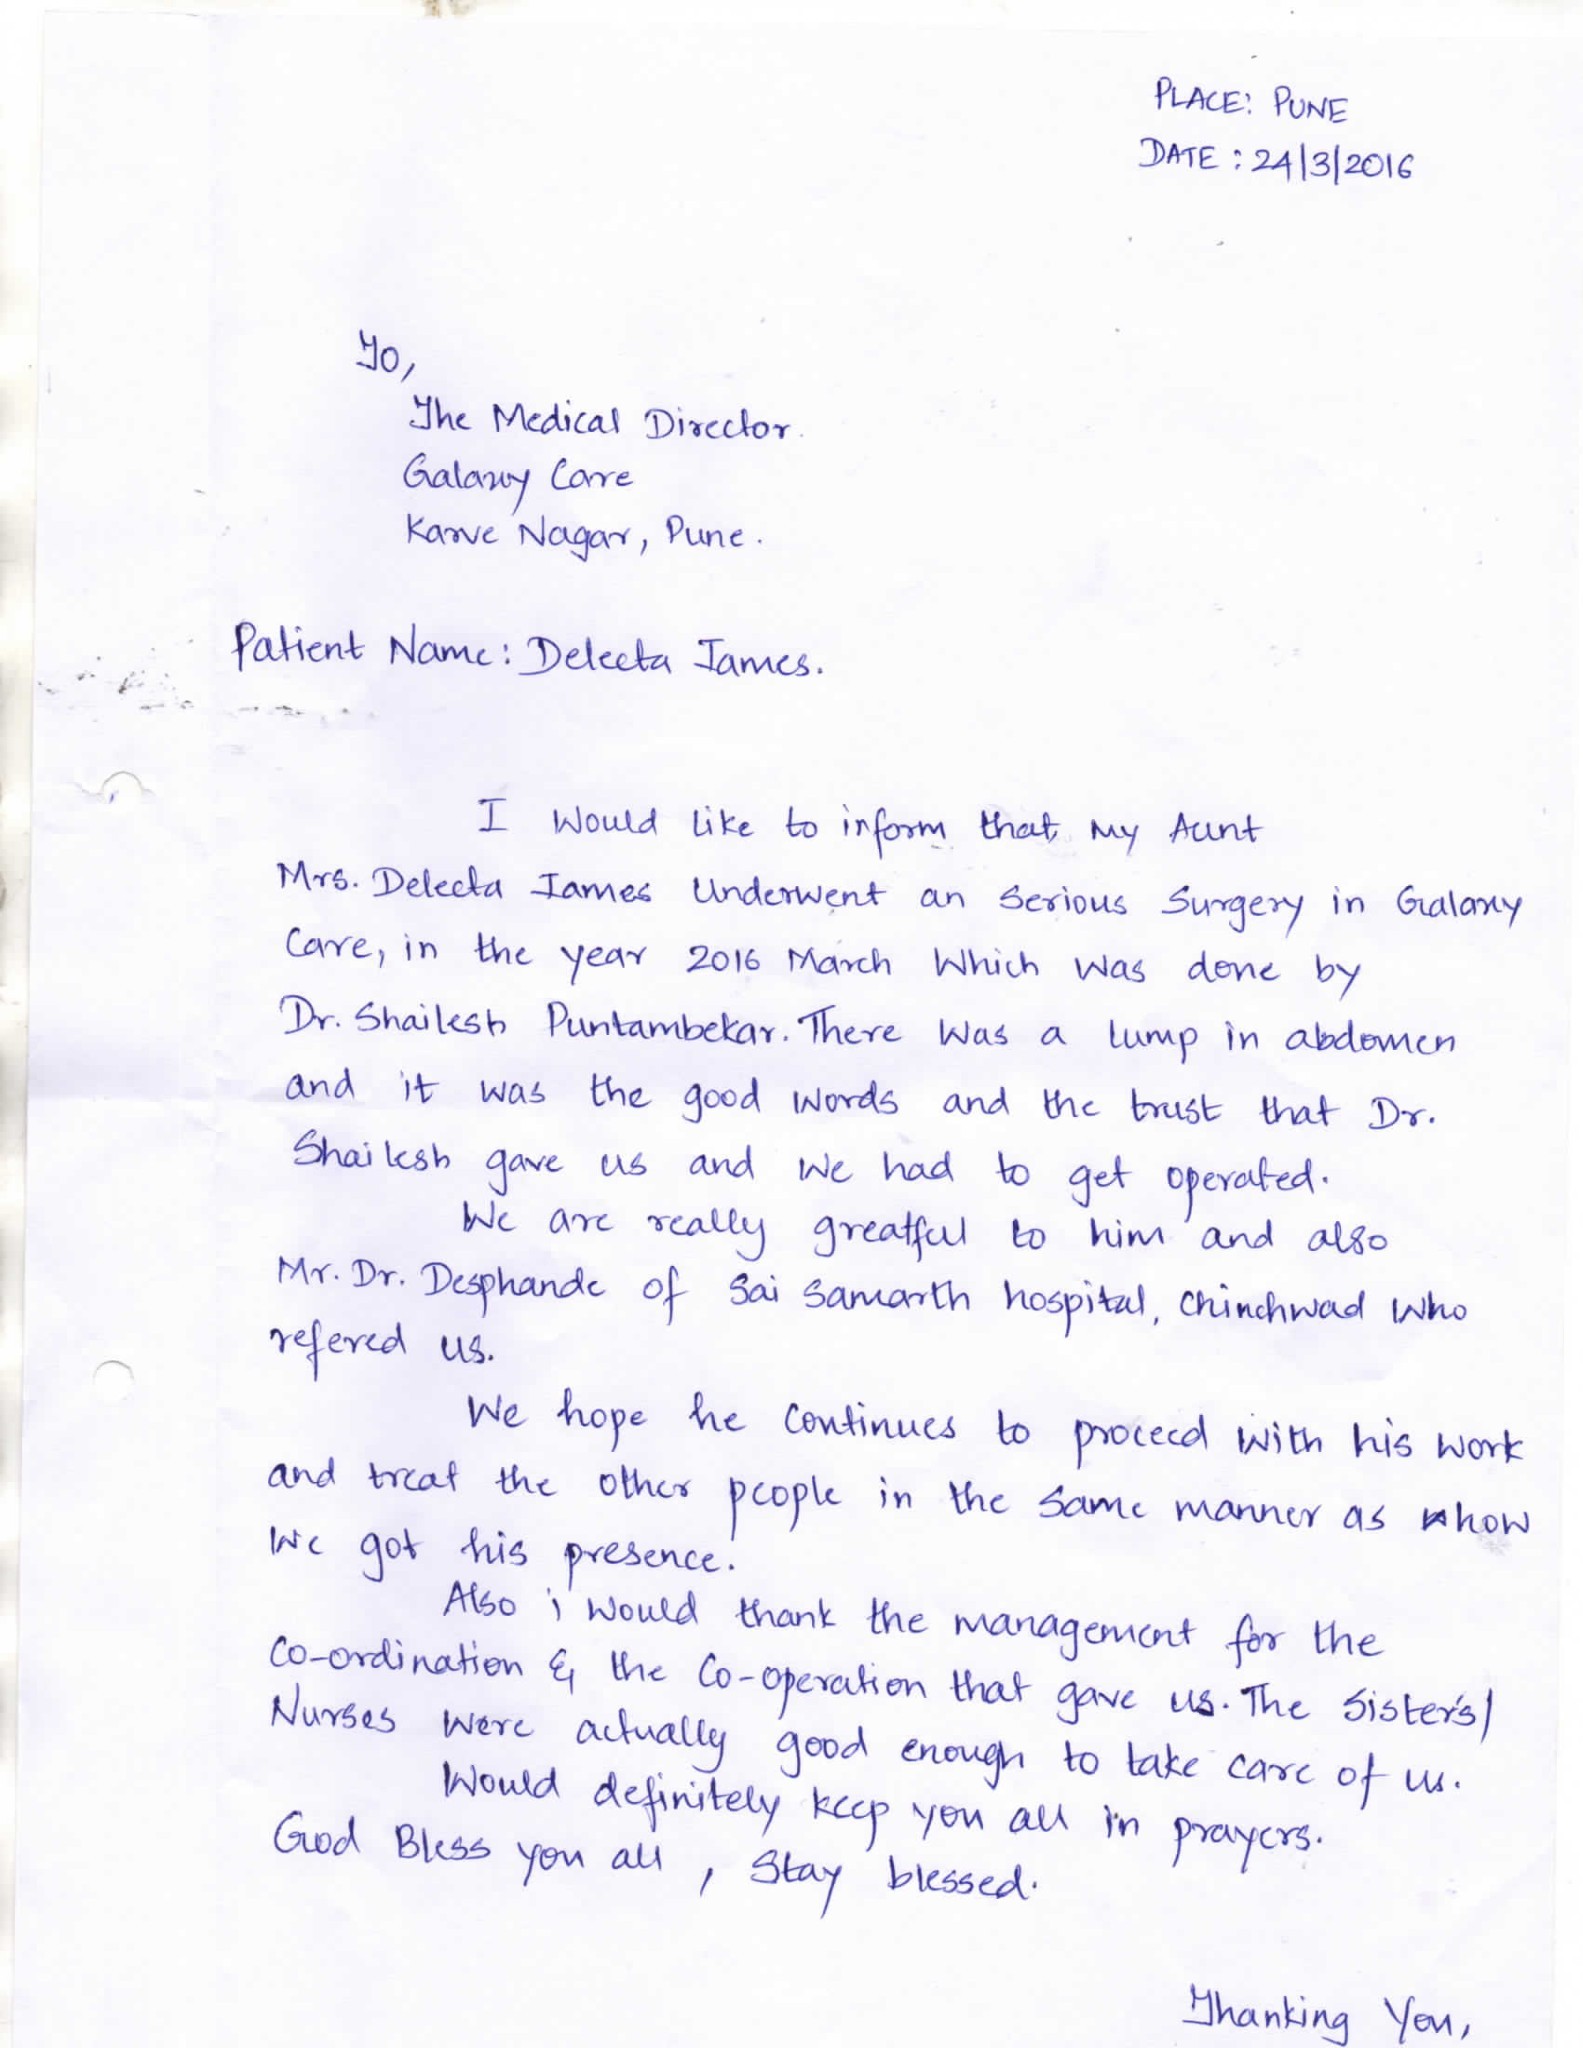 PLACE: PUNE
DATE : 24/3/2016
To,
The Medical Director.
Galaxy Care
Karve Nagar, Pune.
Patient Name: Delecta James.
I would like to inform that my Aunt
Mrs. Delecta James underwent an serious surgery in Galaxy
Care, in the year 2016 March which was done by
Dr. Shailesh Puntambekar. There was a lump in abdomen
and it was the good words and the trust that Dr.
Shailesh gave us and we had to get operated.
We are really greatful to him and also
Mr. Dr. Desphande of Sai Samarth hospital, Chinchwad who
refered us.
We hope he continues to proceed with his work
and treat the other people in the same manner as how
we got his presence.
Also i would thank the management for the
co-ordination & the co-operation that gave us. The Sister's/
Nurses were actually good enough to take care of us.
Would definitely keep you all in prayers.
God Bless you all, stay blessed.
Thanking You,